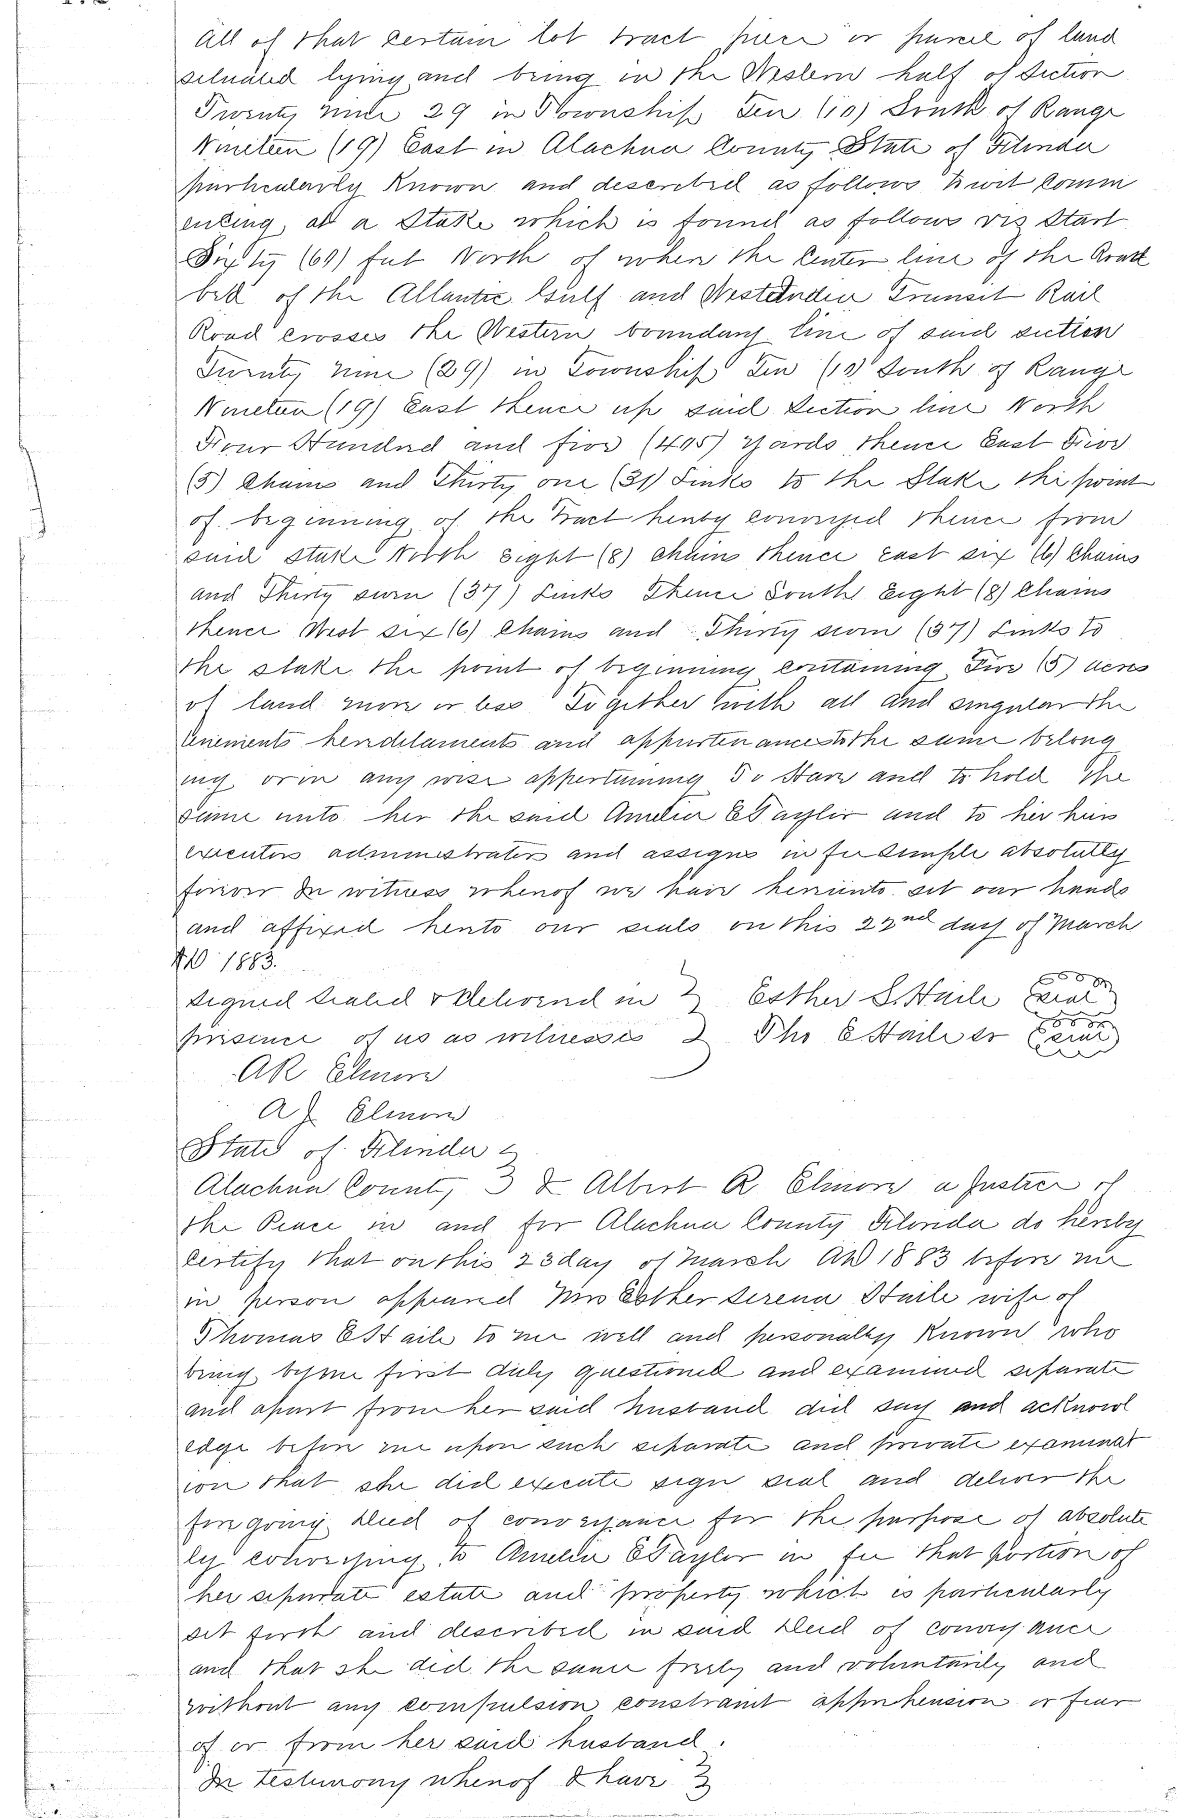 All of that certain lot tract piece or parcel of land
situated lying and being in the Western half of Section
Twenty nine 29 in Township Ten (10) South of Range
Nineteen (19) East in Alachua County State of Florida
particularly Known and described as follows towit Comm
encing at a Stake which is found as follows viz Start
Sixty (60) feet North of where the Center line of the Road
bed of the Atlantic Gulf and WestIndia Transit Rail
Road crosses the Western boundary line of said section
Twenty nine (29) in Township Ten (10) South of Range
Nineteen (19) East thence up said Section line North
Four Hundred and five (405) yards thence East Five
(5) Chains and Thirty one (31) Links to the Stake the point
of beginning of the Tract hereby conveyed thence from
said stake North Eight (8) chains thence east six (6) Chains
and Thirty seven (37) Links Thence South Eight (8) Chains
thence West six (6) Chains and Thirty seven (37) Links to
the stake the point of beginning containing Five (5) acres
of land more or less Together with all and singular the
tenements hereditaments and appurtenances to the same belong
ing or in any wise appertaining To Have and to hold the
same unto her the said Amelia E Taylor and to her heirs
executors administrators and assigns in fee simple absolutely
forever In witness whereof we have hereunto set our hands
and affixed hereto our seals on this 22nd day of March
AD 1883.
Signed Sealed & Delivered in } Esther S. Haile Seal
presence of us as witnesses } Tho E Haile sr Seal
AR Elmore
A J. Elmore
State of Florida }
Alachua County } I Albert R Elmore a Justice of
the Peace in and for Alachua County Florida do hereby
Certify that on this 23 day of March AD 1883 before me
in person appeared Mrs Esther Serena Haile wife of
Thomas E Haile to me well and personally Known who
being by me first duly questioned and examined separate
and apart from her said husband did say and acknowl
edge before me upon such separate and private examinat
ion that she did execute sign seal and deliver the
foregoing deed of conveyance for the purpose of absolute
ly conveying to Amelia E Taylor in fee that portion of
her separate estate and property which is particularly
set forth and described in said deed of conveyance
and that she did the same freely and voluntarily and
without any compulsion constraint apprehension or fear
of or from her said husband.
In testimony whereof I have }